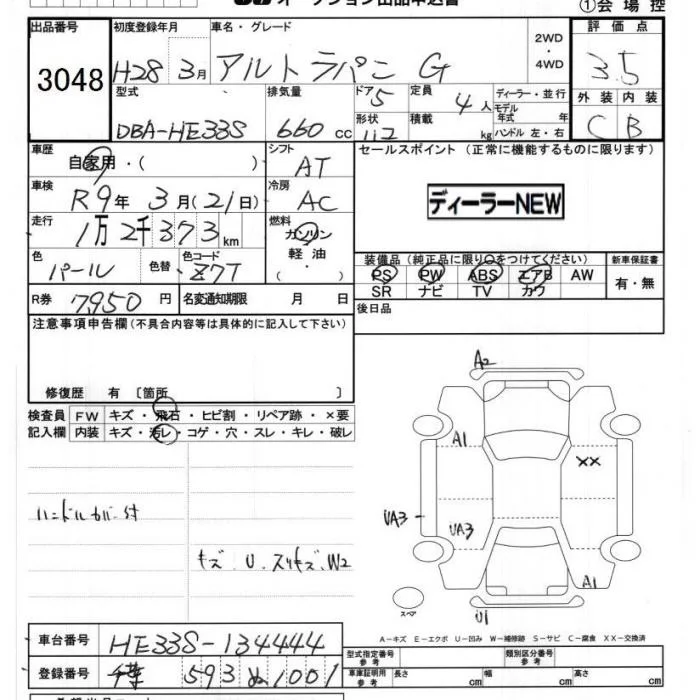 オークション出品申込書
①会場控
出品番号 初度登録年月 車名・グレード 評価点
3048 H28 3月 アルトラパン G 2WD ・ 4WD 3.5
型式 排気量 ドア 5 定員 4人 ディーラー・並行 外装 内装
DBA-HE33S 660 cc 形状 積載 kg モデル年式 年 ハンドル 左・右 C B
車歴 自家用・( ) シフト AT セールスポイント(正常に機能するものに限ります)
車検 R9年 3月(21日) 冷房 AC
ディーラーNEW
走行 1万2千373km 燃料 ガソリン 軽油
色 パール 色替 色コード Z7T 装備品(純正品に限り○をつけてください) 新車保証書
PS PW ABS エアB AW 有・無
SR ナビ TV カワ
R券 7,950円 名変通知期限 月 日
後日品
注意事項申告欄(不具合内容等は具体的に記入して下さい)
修復歴 有 〔箇所 〕
検査員 FW キズ・飛石・ヒビ割・リペア跡・×要
記入欄 内装 キズ・汚レ・コゲ・穴・スレ・キレ・破レ
A2
A1
××
ハンドルカバー付
UA3 UA3
キズ、U、スリキズ、W2
A1
スペア
U1
A-キズ E-エクボ U-凹み W-補修跡 S-サビ C-腐食 XX-交換済
車台番号 HE33S-134444
型式指定番号 参考 類別区分番号 参考
登録番号 千葉 593 ぬ 1001
車庫証明用 参考 長さ cm 幅 cm 高さ cm